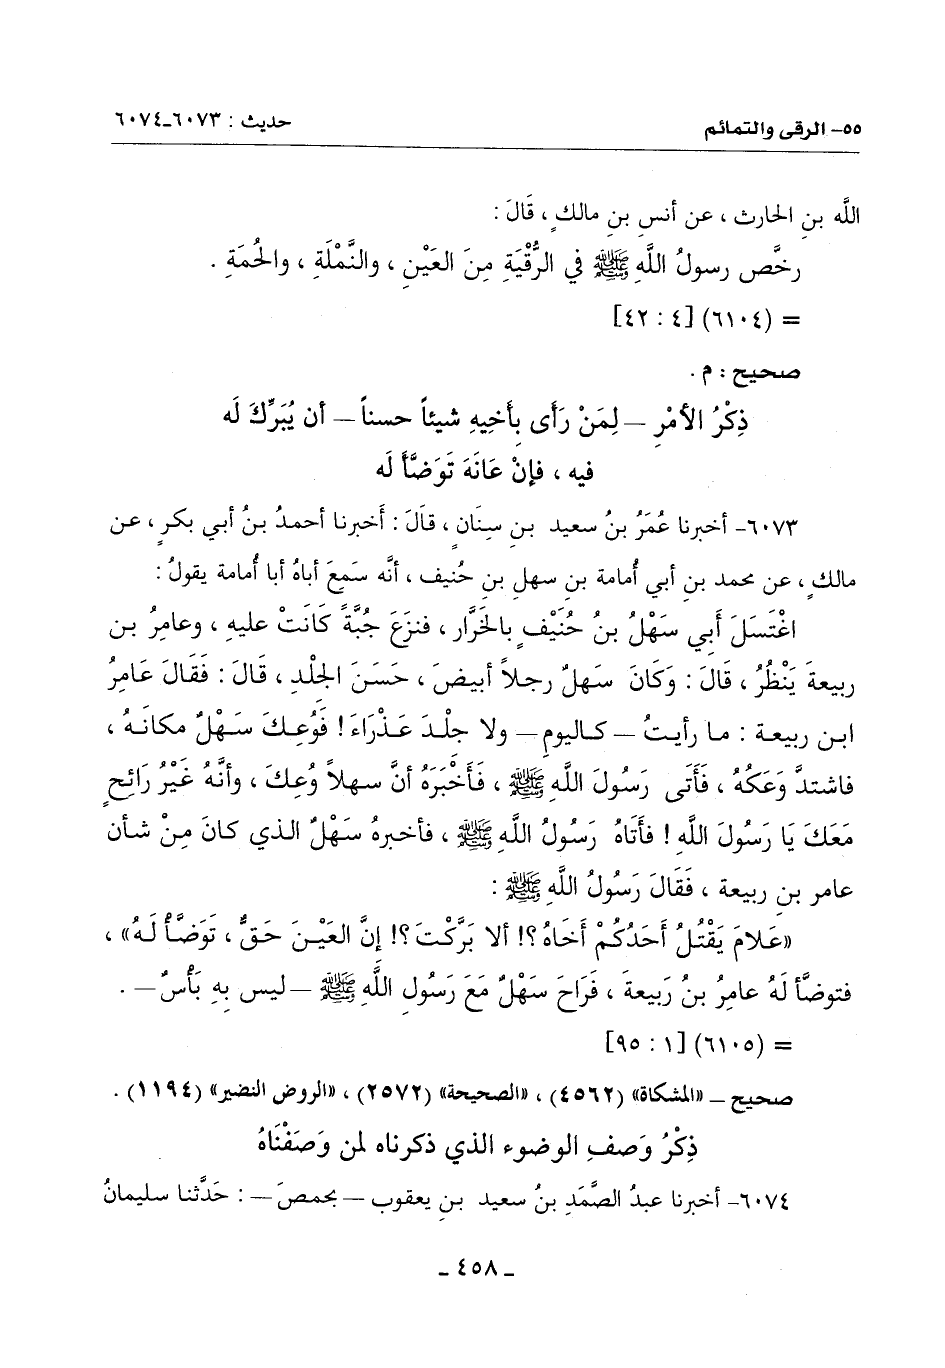 ٥٥- الرقى والتمائم
حديث : ٦٠٧٣-٦٠٧٤
اللَّه بنِ الحارث ، عن أنس بنِ مالكٍ ، قَالَ :
رخَّص رسولُ اللَّهِ ﷺ في الرُّقْيَةِ مِنَ العَيْنِ ، والنَّمْلَةِ ، والحُمَةِ .
= (٦١٠٤) [٤ : ٤٢]
صحيح : م .
ذِكْرُ الأمْرِ – لِمَنْ رَأَى بِأَخيهِ شيئاً حسناً – أن يُبَرِّكَ لَه
فيه ، فإنْ عَانَهَ تَوَضَّأَ لَه
٦٠٧٣- أخبرنا عُمَرُ بنُ سعيد بنِ سِنَانٍ ، قَالَ : أَخبرنا أحمدُ بنُ أبي بكرٍ ، عن
مالكٍ ، عن محمد بنِ أبي أُمامة بنِ سهل بنِ حُنيف ، أنَّه سَمِعَ أباهُ أبا أُمامة يقولُ :
اغْتَسَلَ أَبِي سَهْلُ بنُ حُنَيْفٍ بِالخَرَّارِ ، فنزَعَ جُبَّةً كَانَتْ عليهِ ، وعامِرُ بن
ربيعةَ يَنْظُرُ ، قَالَ : وَكَانَ سَهلٌ رجلاً أبيضَ ، حَسَنَ الجِلْدِ ، قَالَ : فَقَالَ عَامِرُ
ابن ربيعة : ما رأيتُ – كاليومِ – ولا جِلْدَ عَذْرَاءَ ! فَوُعِكَ سَهْلٌ مكانَهُ ،
فاشتدَّ وَعَكُهُ ، فَأَتَى رَسُولَ اللَّهِ ﷺ ، فَأَخْبَرَهُ أنَّ سهلاً وُعِكَ ، وأنَّهُ غَيْرُ رَائِحٍ
مَعَكَ يَا رَسُولَ اللَّهِ ! فأَتَاهُ رَسُولُ اللَّهِ ﷺ ، فأخبرهُ سَهْلٌ الذي كانَ مِنْ شأن
عامر بنِ ربيعة ، فَقَالَ رَسُولُ اللَّهِ ﷺ :
«عَلامَ يَقْتُلُ أَحَدُكُمْ أَخَاهُ ؟! ألا بَرَّكْتَ ؟! إنَّ العَيْنَ حَقٌّ ، تَوَضَّأْ لَهُ» ،
فتوضَّأ لَهُ عامِرُ بنُ رَبيعةَ ، فَرَاحَ سَهْلٌ مَعَ رَسُولِ اللَّهِ ﷺ – ليس بِهِ بَأْسٌ – .
= (٦١٠٥) [١ : ٩٥]
صحيح – «المشكاة» (٤٥٦٢) ، «الصحيحة» (٢٥٧٢) ، «الروض النضير» (١١٩٤) .
ذِكْرُ وَصفِ الوضوء الذي ذكرناه لمن وَصَفْنَاهُ
٦٠٧٤- أخبرنا عبدُ الصَّمَدِ بنُ سعيد بنِ يعقوب – بحمصَ – : حَدَّثنا سليمانُ
- ٤٥٨ -